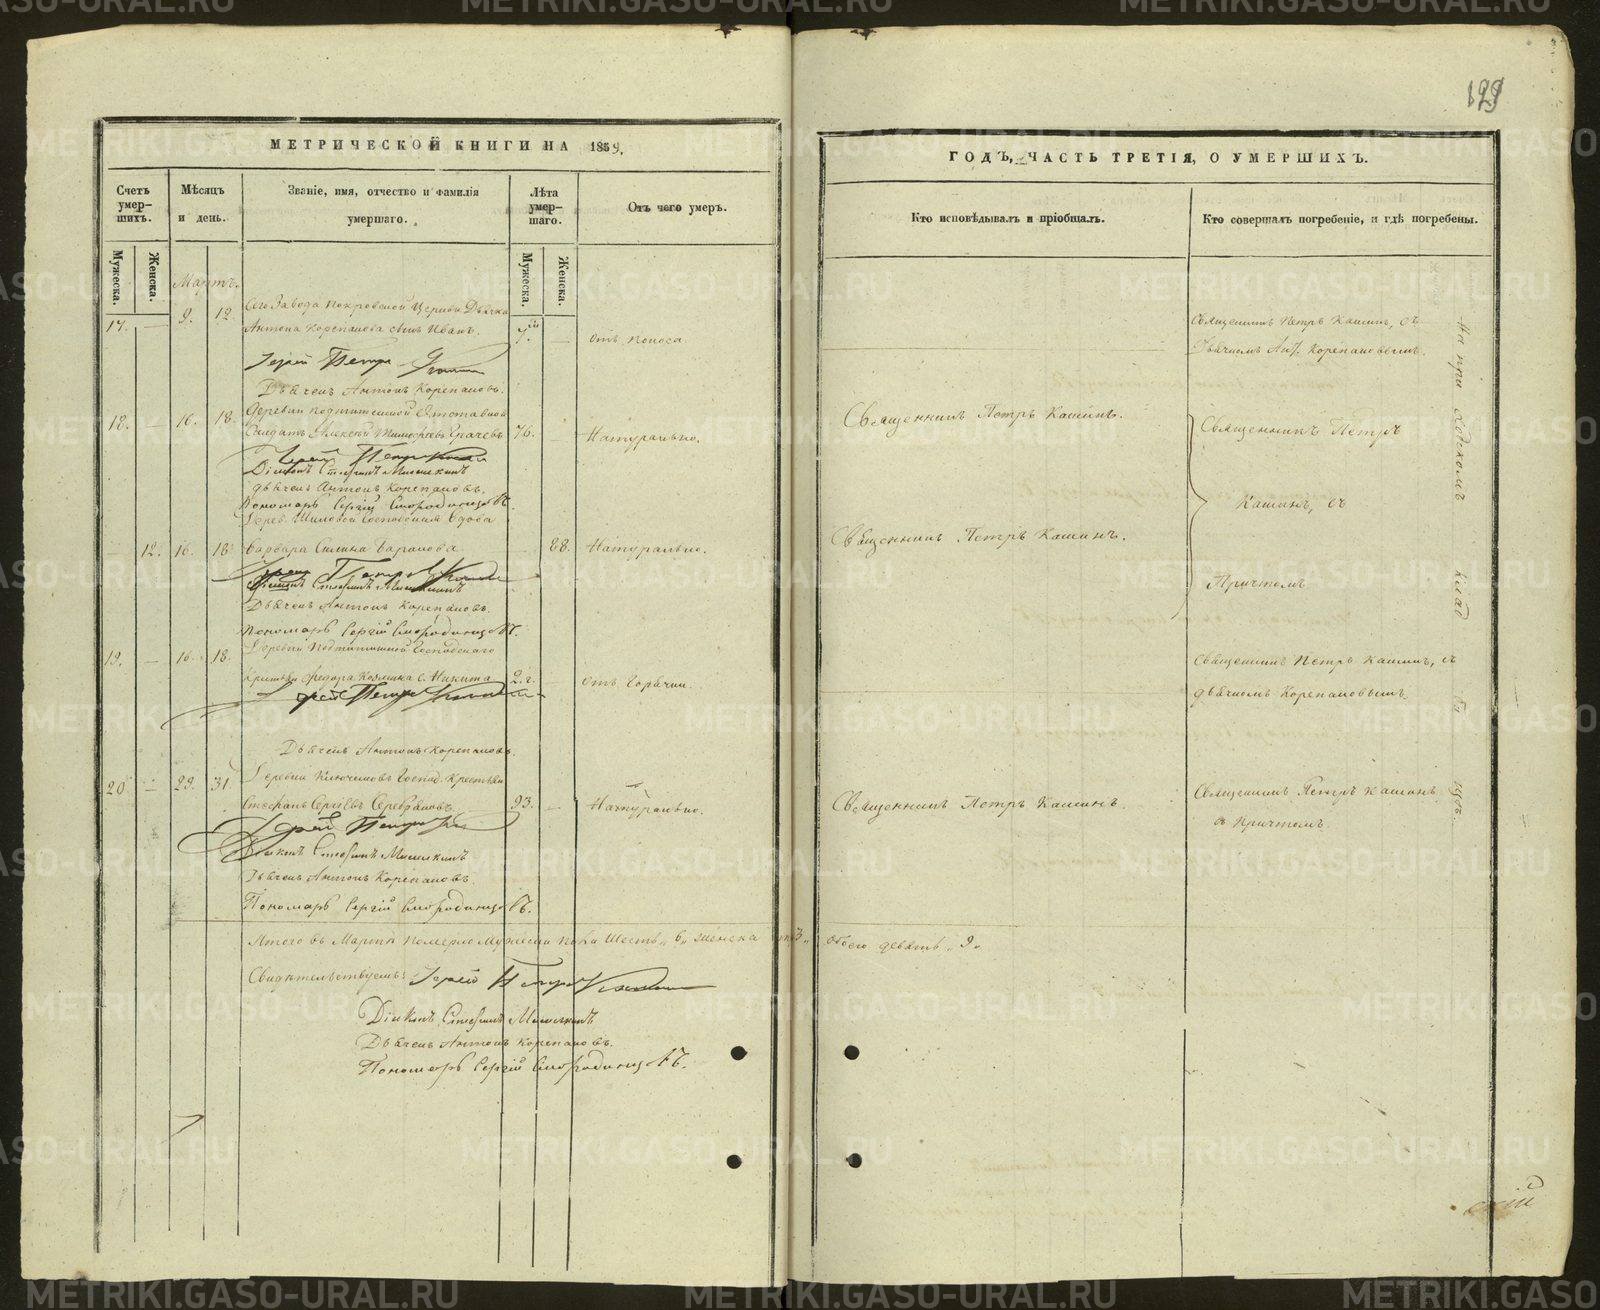 129
МЕТРИЧЕСКОЙ КНИГИ НА 1859,
Счетъ умер-шихъ.
Мѣсяцъ и день.
Званіе, имя, отчество и фамилія умершаго.
Лѣта умер-шаго.
Отъ чего умеръ.
Мужеска.
Женска.
Мужеска.
Женска.
Мартъ.
17. — 9. 12. Сего Завода Покровской Церкви Дьячка
Антона Корепанова сынъ Иванъ. 7. — Отъ поноса
Іерей Петръ Кашинъ
Дьячекъ Антонъ Корепановъ.
18. — 16. 18. Деревни отставной
Солдатъ Алексей Грачевъ 76. — Натурально.
Іерей Петръ Кашинъ
Діаконъ Стефанъ
Дьячекъ Антонъ Корепановъ.
Пономарь Сергій Смородинцовъ.
Вдова
— 12. 16. 18. Варвара Силина Баранова 88. Натурально.
Іерей Петръ Кашинъ
Діаконъ Стефанъ
Дьячекъ Антонъ Корепановъ.
Пономарь Сергій Смородинцовъ.
19. — 16. 18. Деревни
Федора Козмина с. Никита 2. г. Отъ Горячки.
Іерей Петръ Кашинъ
Дьячекъ Антонъ Корепановъ.
20 — 29. 31. Деревни Ключиковъ Господ. Крестьян
Стефанъ Сергіевъ Серебряковъ 93. — Натурально.
Іерей Петръ
Діаконъ Стефанъ
Дьячекъ Антонъ Корепановъ.
Пономарь Сергій Смородинцовъ.
Итого въ Мартѣ померло Мужеска пола Шесть „6„ женска 3„ обоего девять „9„
Свидѣтельствуемъ: Іерей Петръ Кашинъ
Діаконъ Стефанъ
Дьячекъ Антонъ Корепановъ.
Пономарь Сергій Смородинцовъ.
ГОДЪ, ЧАСТЬ ТРЕТІЯ, О УМЕРШИХЪ.
Кто исповѣдывалъ и пріобщалъ.
Кто совершалъ погребеніе, и гдѣ погребены.
Священникъ Петръ Кашинъ, съ
Дьячкомъ Ант. Корепановымъ.
Священникъ Петръ Кашинъ.
Священникъ Петръ
Кашинъ, съ
Священникъ Петръ Кашинъ.
Причтомъ
Священникъ Петръ Кашинъ, съ
дьячкомъ Корепановымъ.
Священникъ Петръ Кашинъ.
Священникъ Петръ Кашинъ
съ Причтомъ.
На приходскомъ кладбищѣ.
METRIKI.GASO-URAL.RU